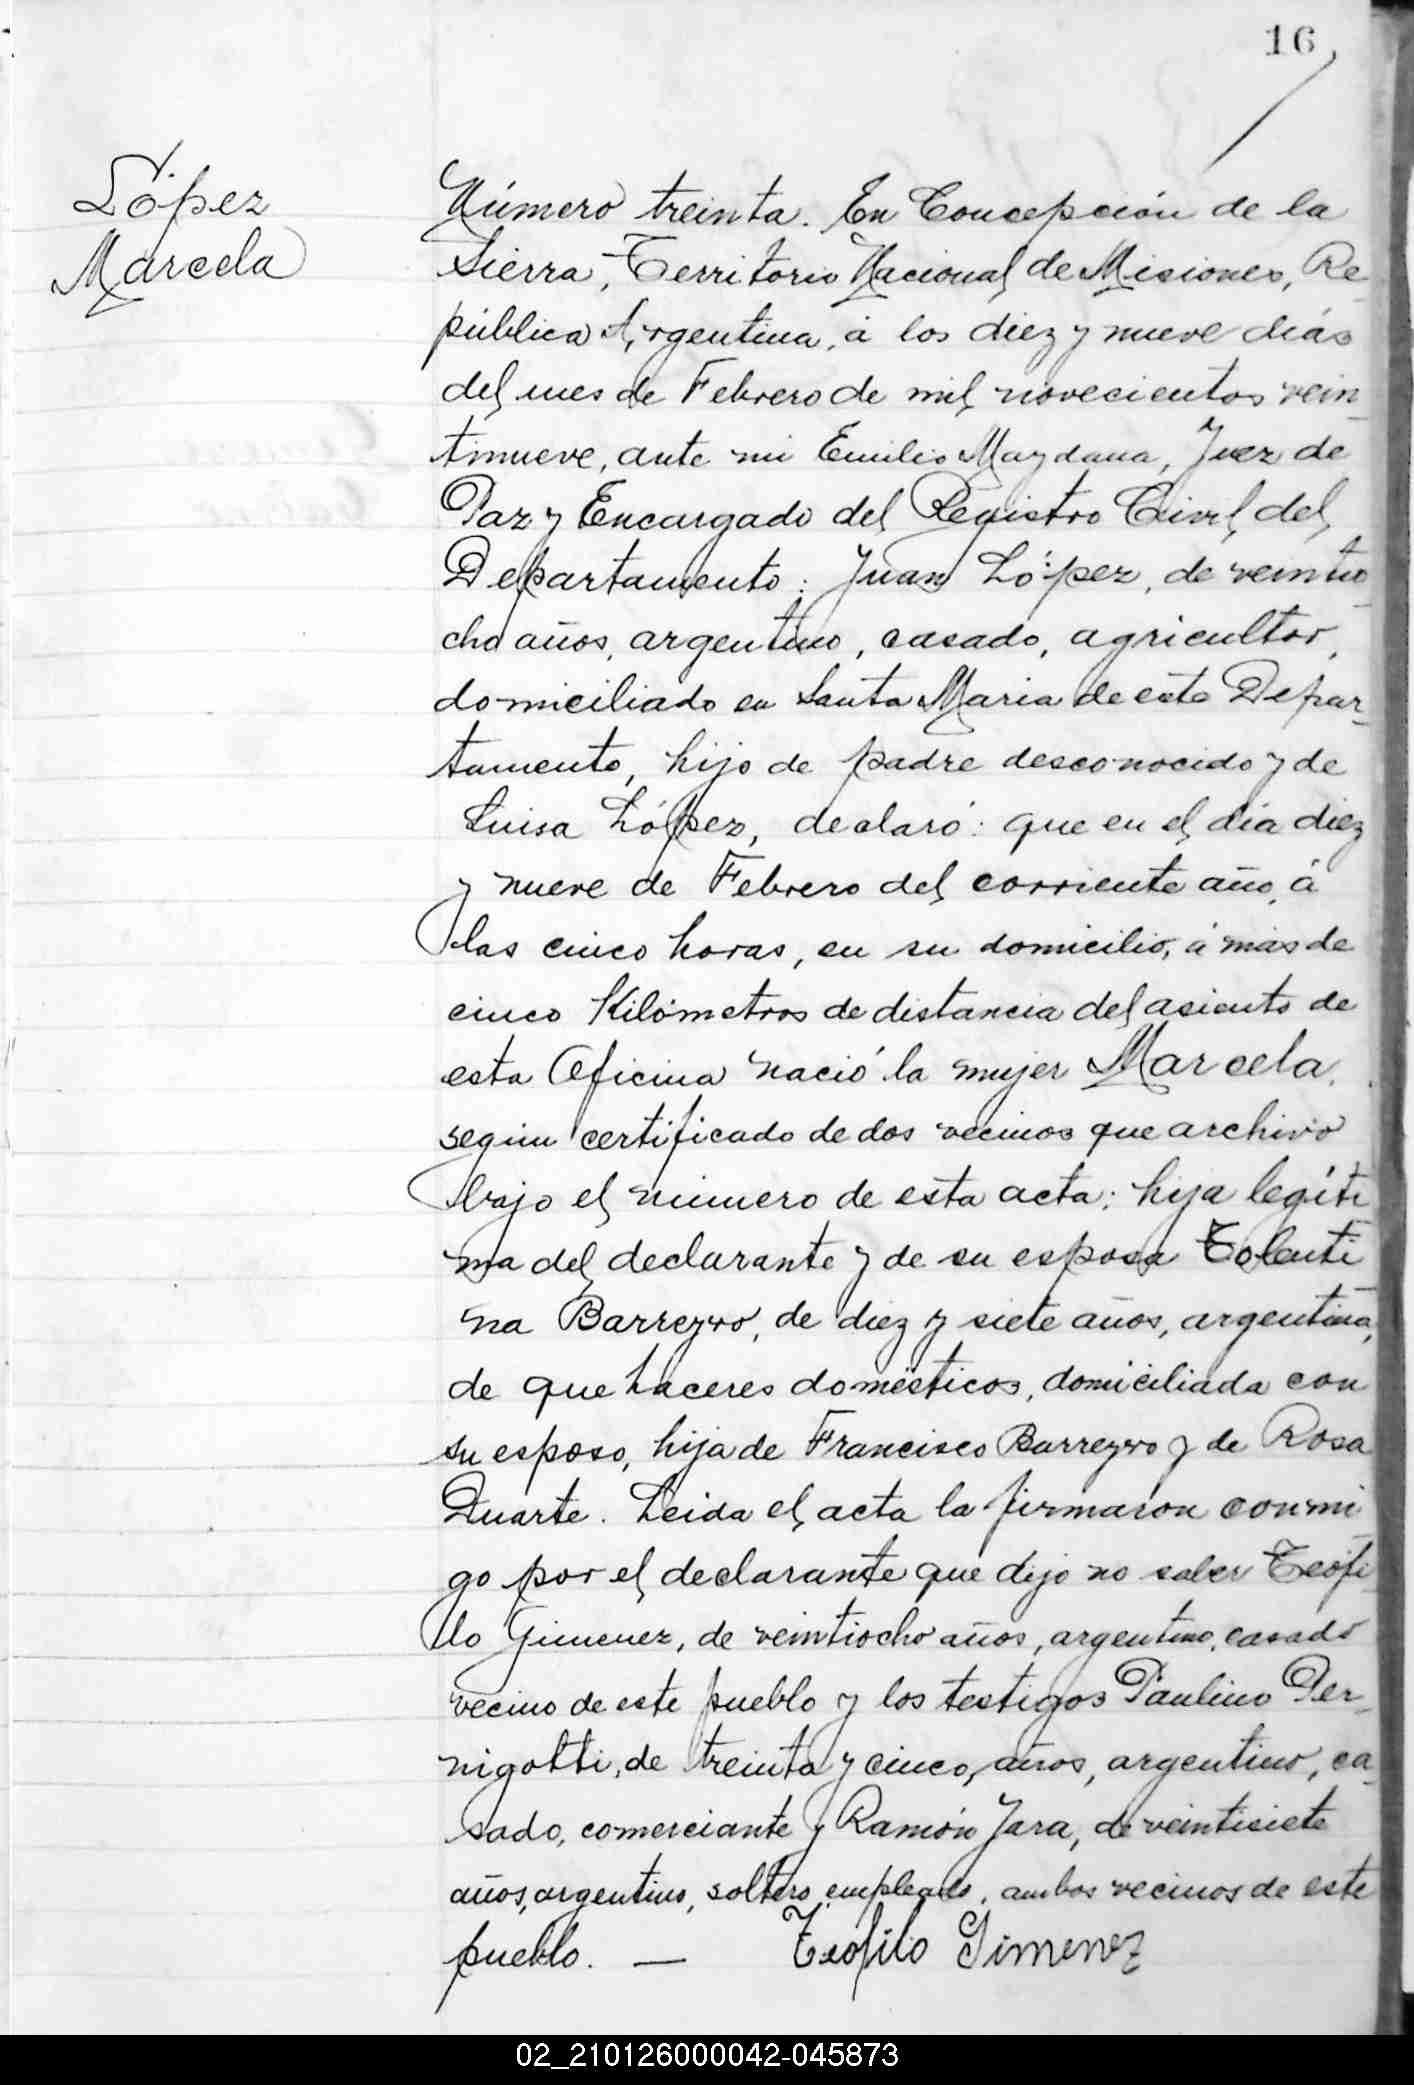 16
López
Marcela
Número treinta. En Concepción de la
Sierra, Territorio Nacional de Misiones, Re
pública Argentina, á los diez y nueve dias
del mes de Febrero de mil novecientos vein
tinueve, ante mi Emilio Maydana, Juez de
Paz y Encargado del Registro Civil del
Departamento: Juan López, de veintio
cho años, argentino, casado, agricultor,
domiciliado en Santa Maria de este Depar-
tamento, hijo de padre desconocido y de
Luisa López, declaró: que en el dia diez
y nueve de Febrero del corriente año, á
las cinco horas, en su domicilio, á más de
cinco Kilómetros de distancia del asiento de
esta Oficina nació la mujer Marcela,
según certificado de dos vecinos que archivo
bajo el número de esta acta: hija legíti
ma del declarante y de su esposa Tolenti
na Barreyro, de diez y siete años, argentina,
de que haceres domésticos, domiciliada con
su esposo, hija de Francisco Barreyro y de Rosa
Duarte. Leida el acta la firmaron conmi
go por el declarante que dijo no saber Teófi
lo Gimenez, de veintiocho años, argentino, casado
vecino de este pueblo y los testigos Paulino Per-
nigotti, de treinta y cinco años, argentino, ca-
sado, comerciante y Ramón Jara, de veintisiete
años, argentino, soltero, empleado, ambos vecinos de este
pueblo. — Teofilo Gimenez
02_210126000042-045873